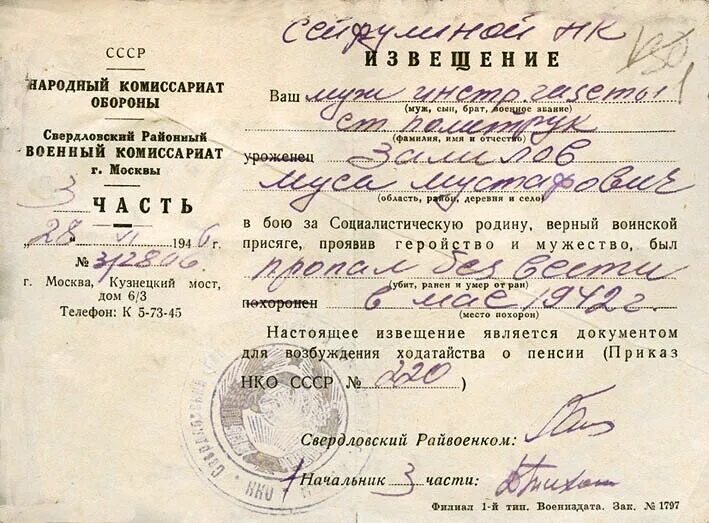 СССР
НАРОДНЫЙ КОМИССАРИАТ
ОБОРОНЫ
Свердловский Районный
ВОЕННЫЙ КОМИССАРИАТ
г. Москвы
3 ЧАСТЬ
28 II 1946 г.
№ 3/2806.
г. Москва, Кузнецкий мост,
дом 6/3
Телефон: К 5-73-45
Сейфулиной НК
ИЗВЕЩЕНИЕ
Ваш муж инстр. газеты
(муж, сын, брат, военное звание)
ст политрук
(фамилия, имя и отчество)
уроженец Залилов
Муса Мустафович
(область, район, деревня и село)
в бою за Социалистическую родину, верный воинской
присяге, проявив геройство и мужество, был
пропал без вести
(убит, ранен и умер от ран)
похоронен в мае 1942 г.
(место похорон)
Настоящее извещение является документом
для возбуждения ходатайства о пенсии (Приказ
НКО СССР № 220)
Свердловский Райвоенком:
Начальник 3 части:
Филиал 1-й тип. Воениздата. Зак. № 1797